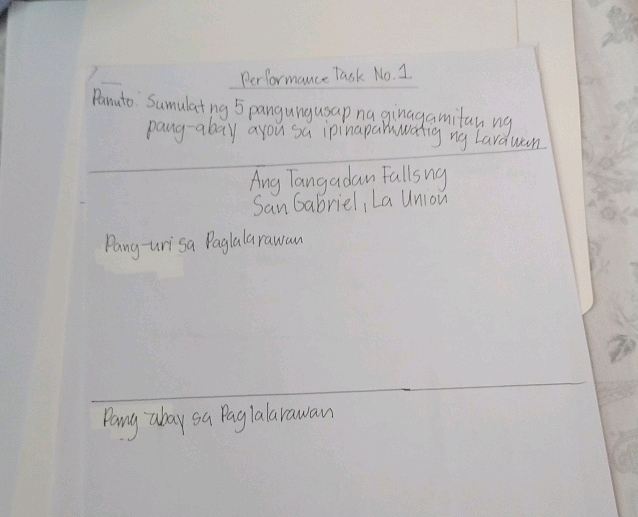 Performance Task No. 1
Panuto: Sumulat ng 5 pangungusap na ginagamitan ng
pang-abay ayon sa ipinapahiwatig ng Larawan
Ang Tangadan Falls ng
San Gabriel, La Union
Pang-uri sa Paglalarawan
Pang-abay sa Paglalarawan